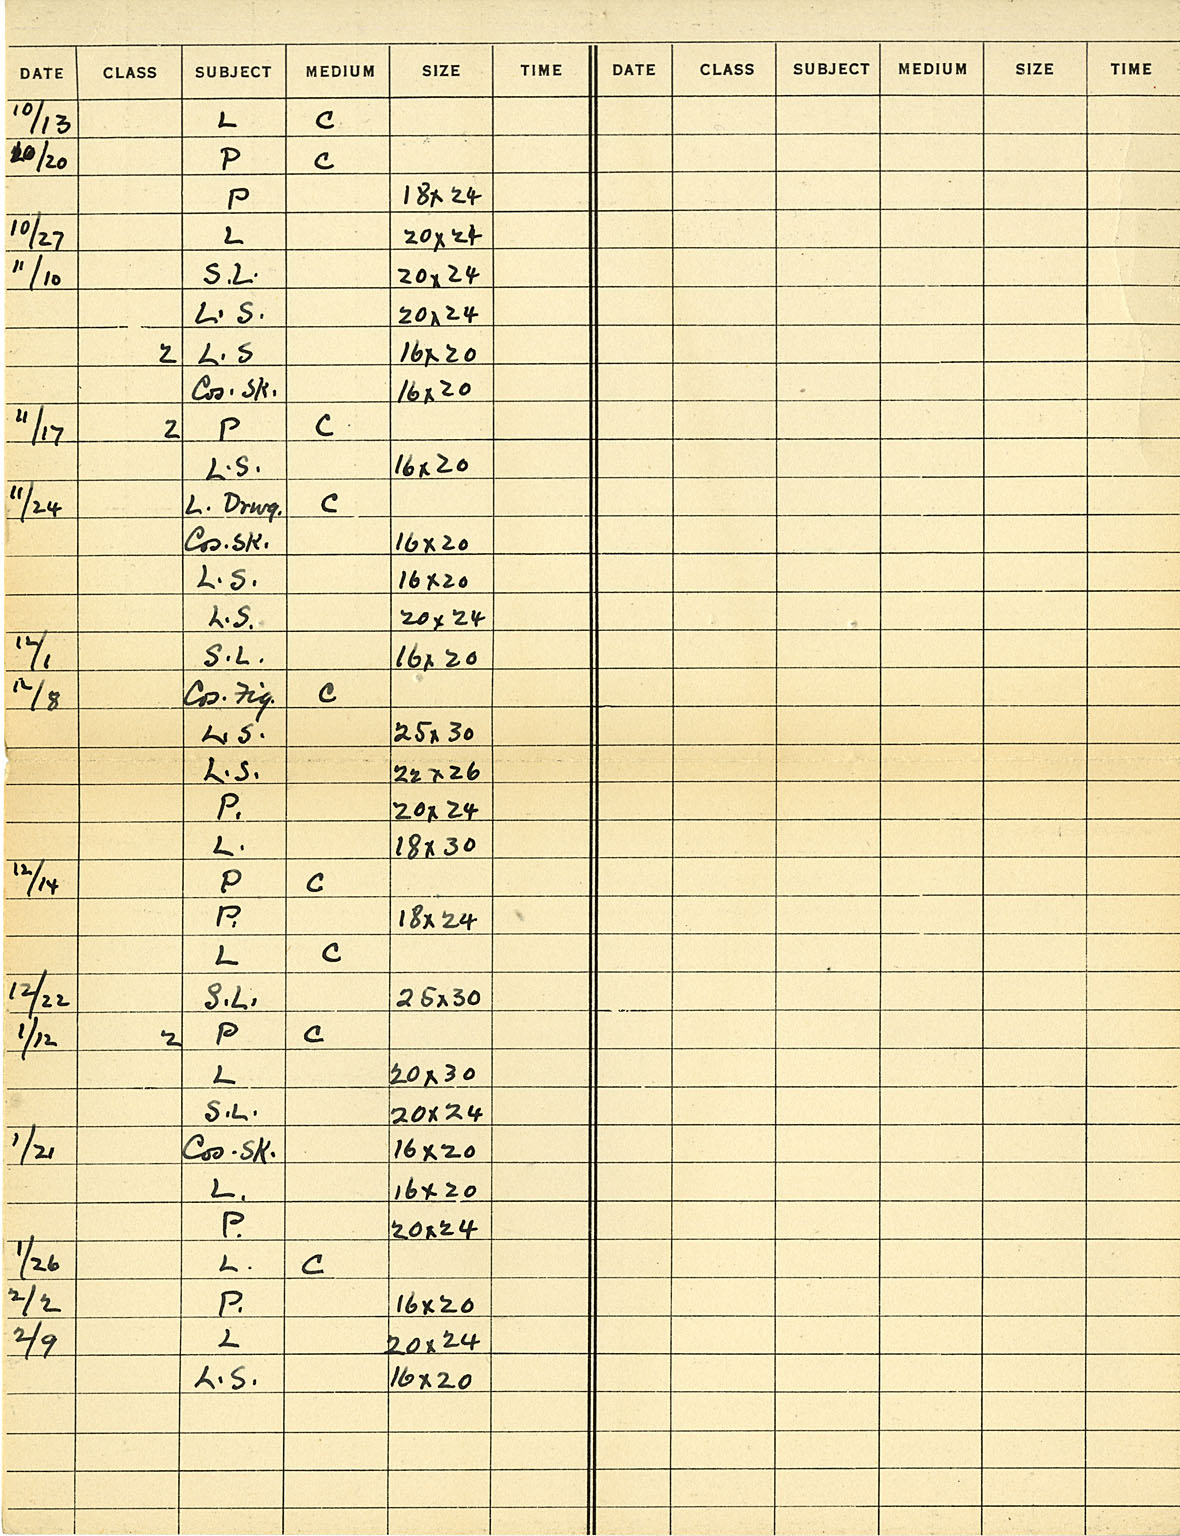 DATE CLASS SUBJECT MEDIUM SIZE TIME DATE CLASS SUBJECT MEDIUM SIZE TIME
10/13 L C
10/20 P C
P 18x24
10/27 L 20x24
11/10 S.L. 20x24
L. S. 20x24
2 L. S 16x20
Cos. Sk. 16x20
11/17 2 P C
L.S. 16x20
11/24 L. Drwg. C
Cos. Sk. 16x20
L. S. 16x20
L.S. 20x24
12/1 S.L. 16x20
12/8 Cos. Fig. C
L. S. 25x30
L.S. 22x26
P. 20x24
L. 18x30
12/14 P C
P. 18x24
L C
12/22 S.L. 25x30
1/12 2 P C
L 20x30
S.L. 20x24
1/21 Cos. Sk. 16x20
L. 16x20
P. 20x24
1/26 L. C
2/2 P. 16x20
2/9 L 20x24
L.S. 16x20